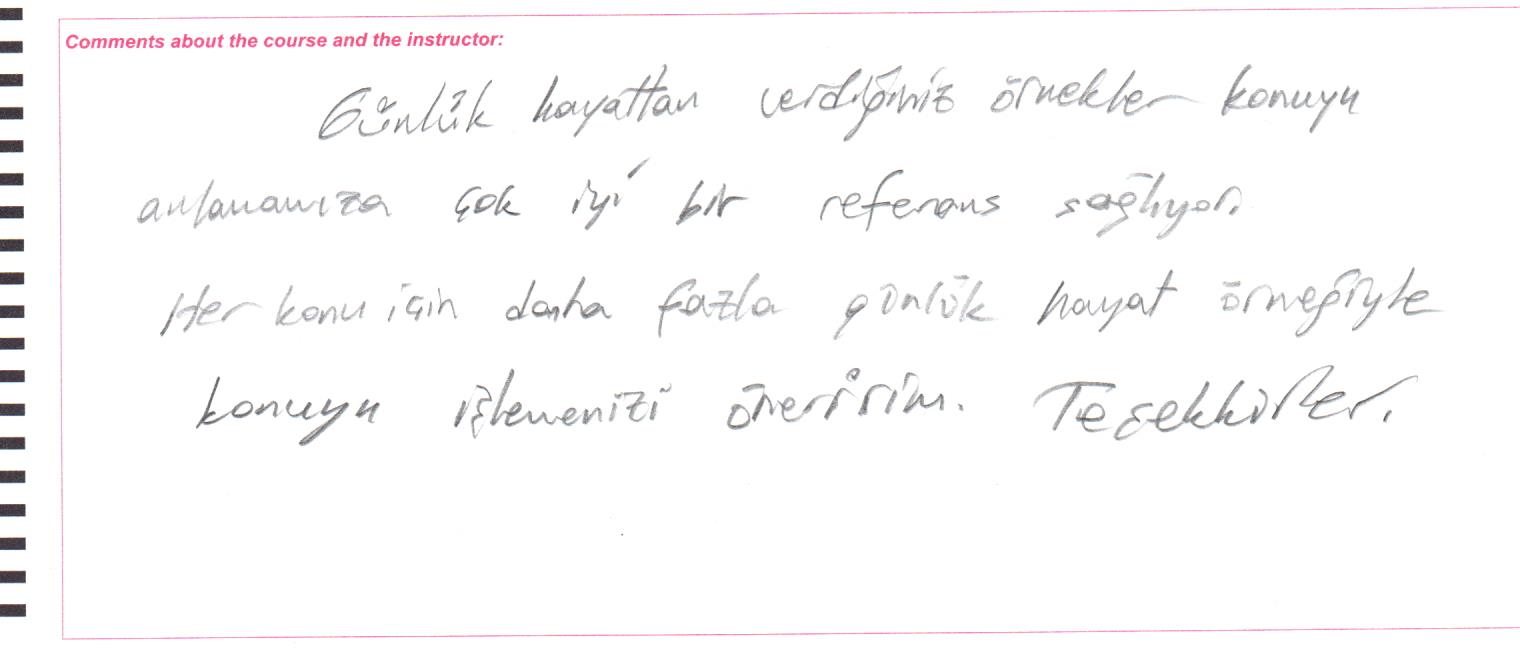 Comments about the course and the instructor:
Günlük hayattan verdiğimiz örnekler konuyu
anlamamıza çok iyi bir referans sağlıyor.
Her konu için daha fazla günlük hayat örneğiyle
konuyu işlemenizi öneririm. Teşekkürler.